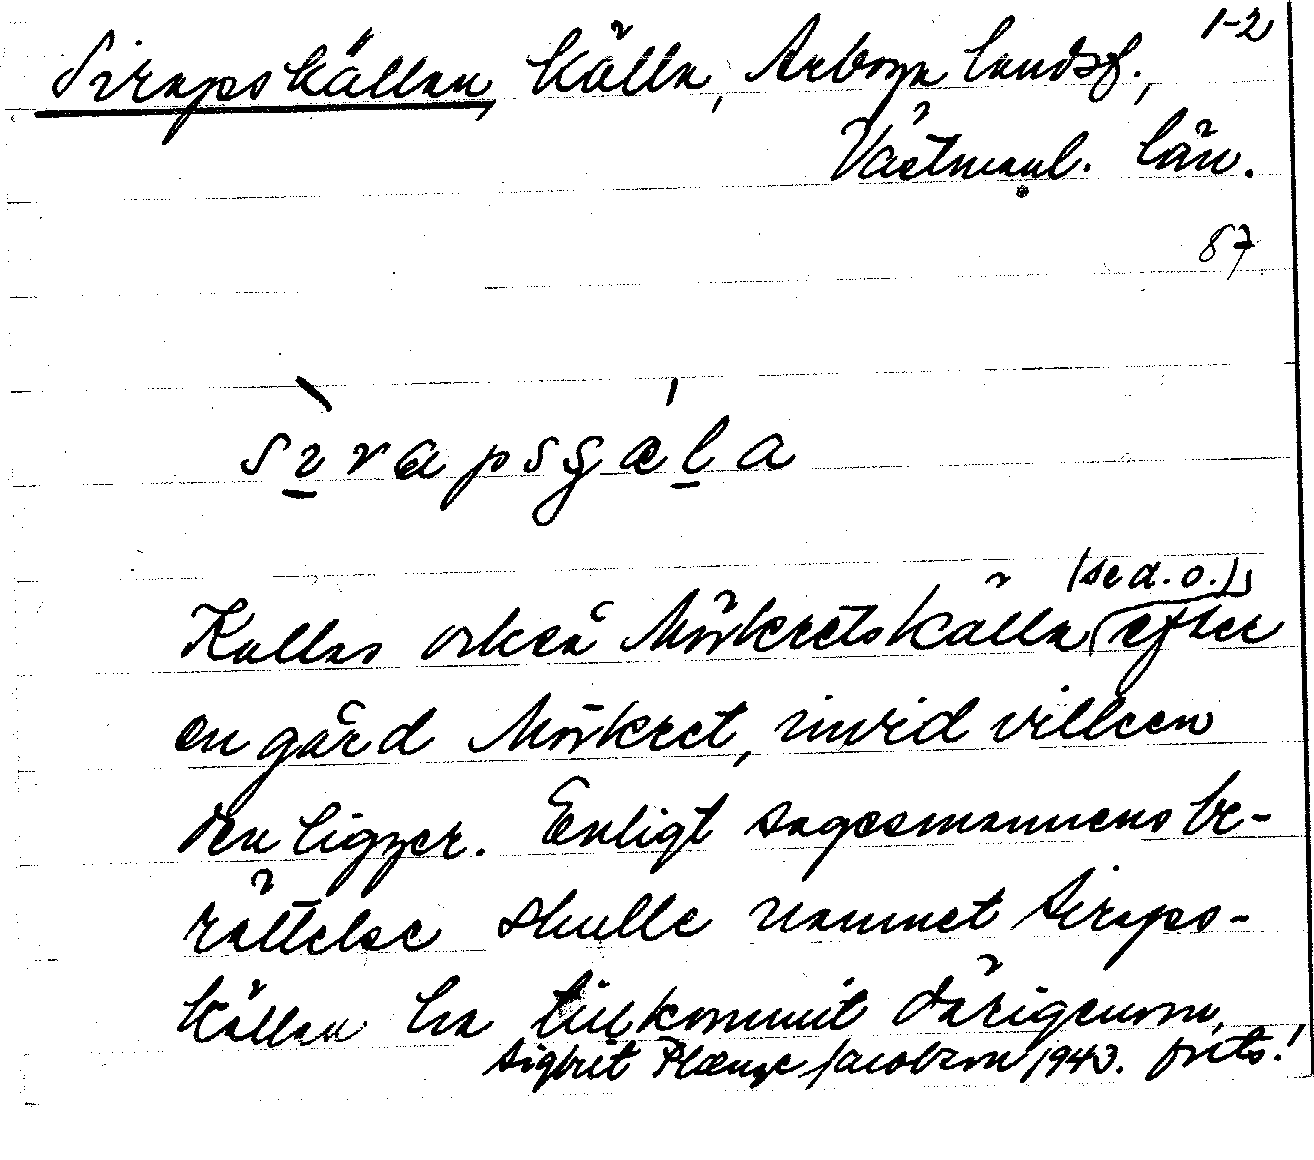 1-2
Sirapskällan, källa, Arboga landsf.,
Västmanl. län.
87
sìrapsgǽla
(se d. o.),
Kallas också Mörkretskälla efter
en gård Mörkret, invid vilken
den ligger. Enligt sagesmannens be-
rättelse skulle namnet Siraps-
källan ha tillkommit därigenom,
Sigbrit Plænge Jacobson 1943. forts.!